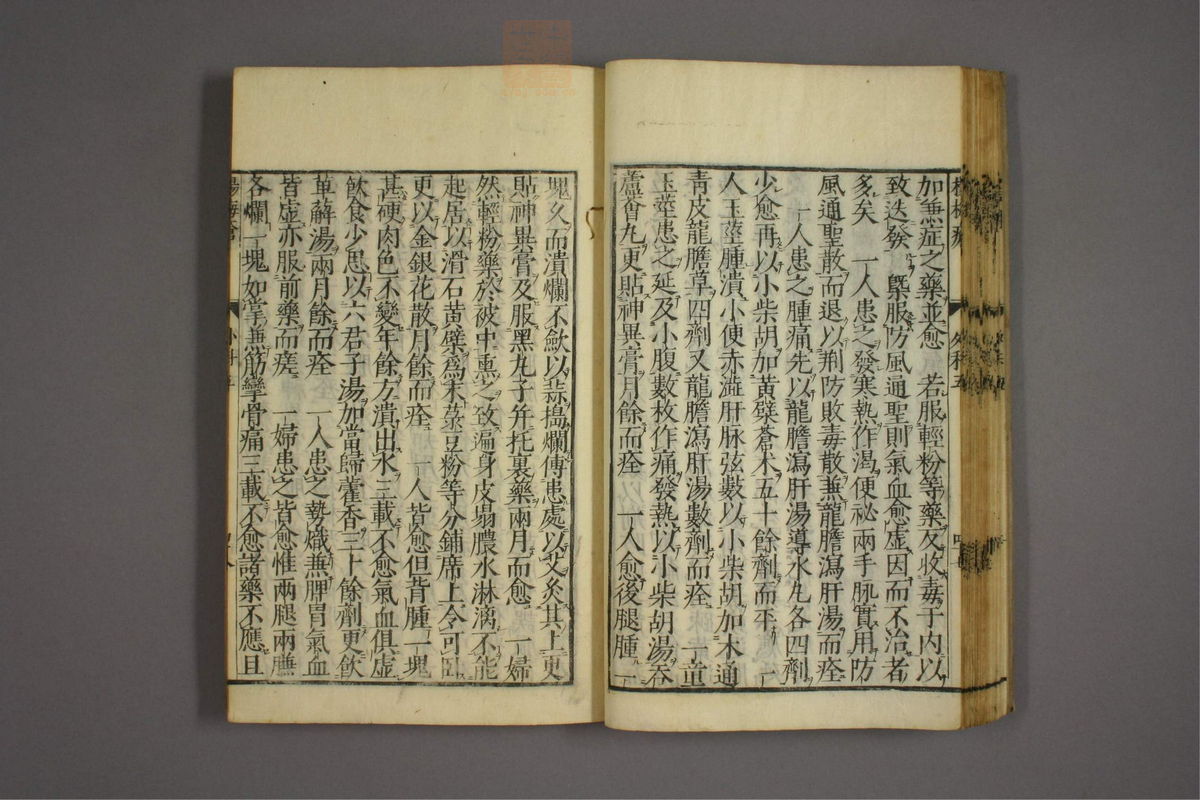 加兼症之藥並愈 若服輕粉等藥反收毒于内以
致迭發 槩服防風通聖則氣血愈虚因而不治者
多矣 一人患之發寒熱作渴便祕兩手脉實用防
風通聖散而退以荆防敗毒散兼龍膽瀉肝湯而痊
一人患之腫痛先以龍膽瀉肝湯導水丸各四劑
少愈再以小柴胡加黄蘗蒼术五十餘劑而平 一
人玉莖腫潰小便赤澁肝脉弦數以小柴胡加木通
青皮龍膽草四劑又龍膽瀉肝湯數劑而痊 一童
玉莖患之延及小腹數枚作痛發熱以小柴胡湯吞
蘆薈丸更貼神異膏月餘而痊 一人愈後腿腫一
塊久而潰爛不歛以蒜搗爛傅患處以艾灸其上更
貼神異膏及服黑丸子并托裏藥兩月而愈 一婦
然輕粉藥於被中熏之致遍身皮塌膿水淋漓不能
起居以滑石黄蘗爲末菉豆粉等分鋪席上令可臥
更以金銀花散月餘而痊 一人皆愈但背腫一塊
甚硬肉色不變年餘方潰出水三載不愈氣血俱虚
飲食少思以六君子湯加當歸藿香三十餘劑更飲
萆薢湯兩月餘而痊 一人患之勢熾兼脾胃氣血
皆虚亦服前藥而瘥 一婦患之皆愈惟兩腿兩臁
各爛一塊如掌兼筋攣骨痛三載不愈諸藥不應且